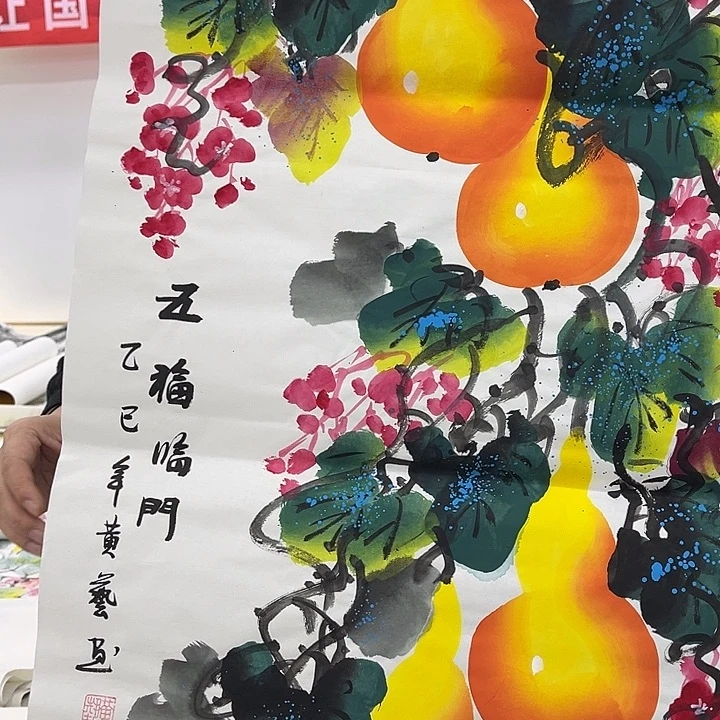 让国
五福临門
乙巳年黄藝画